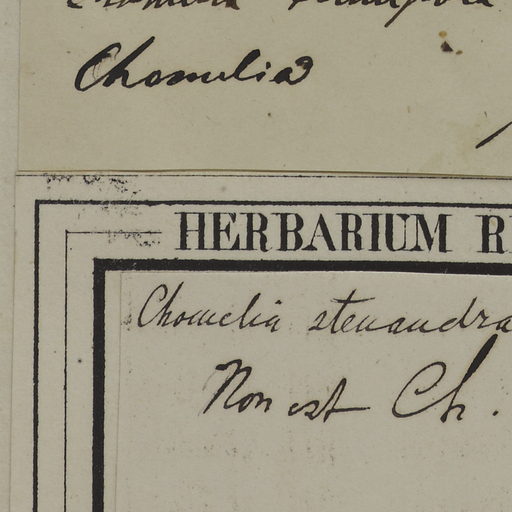 Chomelia
HERBARIUM R
Chomelia stenandra
Non est Ch.